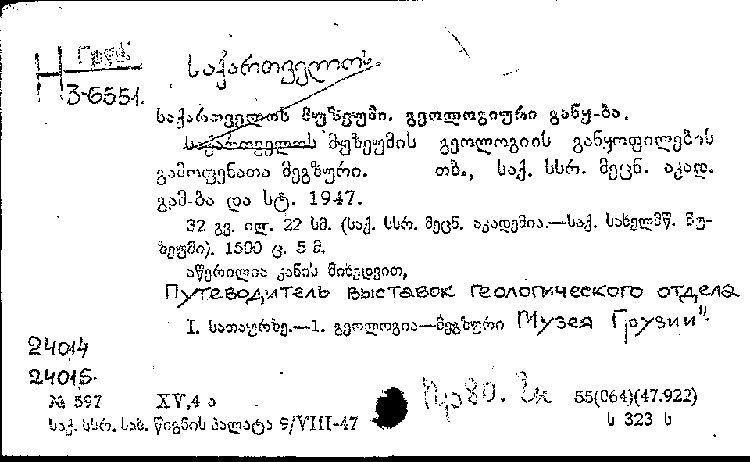 Груз.
Н З-6551.
საქართველოს.
საქართველოს მუზეუმი. გეოლოგიური განყ-ბა.
საქართველოს მუზეუმის გეოლოგიის განყოფილების
გამოფენათა მეგზური. თბ., საქ. სსრ. მეცნ. აკად.
გამ-ბა და სტ. 1947.
32 გვ. ილ. 22 სმ. (საქ. სსრ. მეცნ. აკადემია.—საქ. სახელმწ. მუ-
ზეუმი). 1500 ც. 5 მ.
აწერილია კანის მიხედვით,
Путеводитель выставок геологического отдела
I. სათაურზე.—1. გეოლოგია—მეგზური Музея Грузии
24014
24015.
№ 597 XV,4 ა 55(064)(47.922)
საქ. სსრ. სახ. წიგნის პალატა 9/VIII-47 ს 323 ს